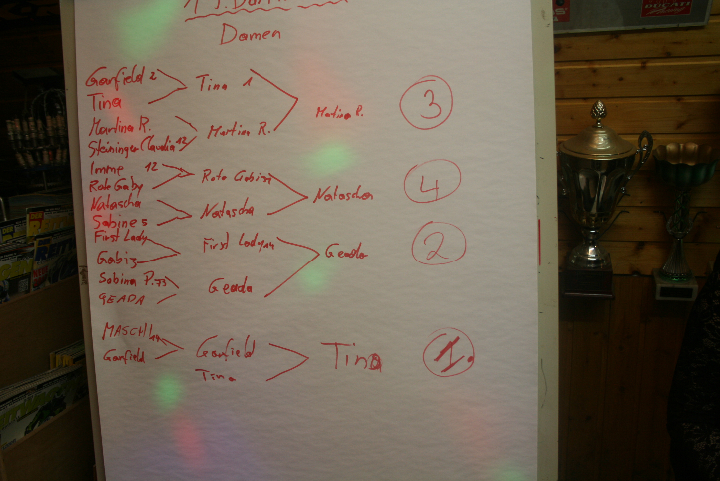 Damen
Garfield 2
Tina 1
Tina
Martina R.
3
Martina R.
Martina R.
Steininger Claudia 12
Imme 12
Rote Gabi
4
Rote Gaby
Natascha
Natascha
Natascha
Sabine 5
First Lady
First Lady
2
Geada
Gabi
Sabina P. 73
Geada
GEADA
MASCHI
Garfield
Tina
1.
Garfield
Tina
DUCATI